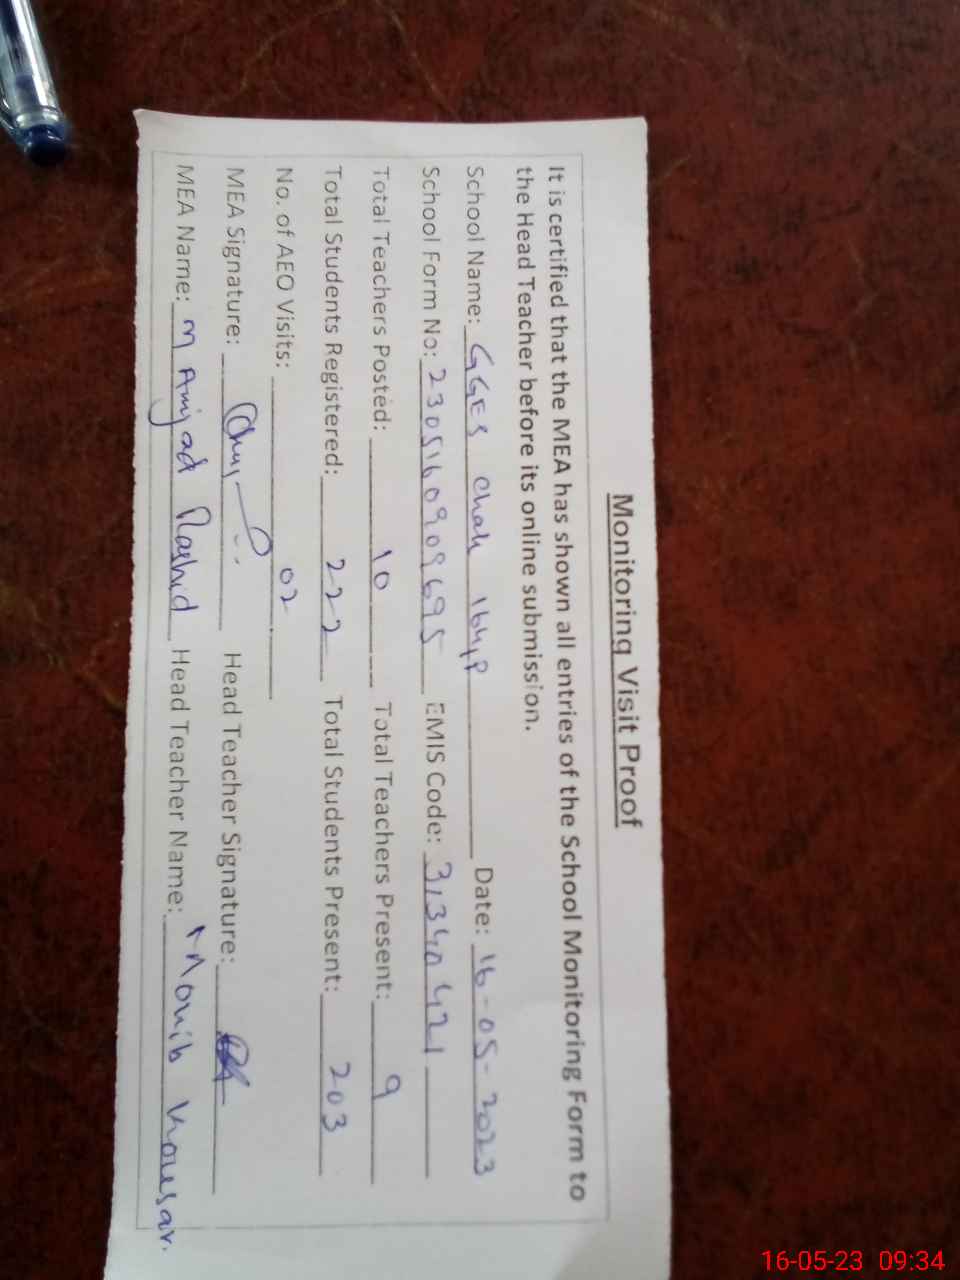 Monitoring Visit Proof
It is certified that the MEA has shown all entries of the School Monitoring Form to
the Head Teacher before its online submission.
School Name: GGES Chak 164/P Date: 16-05-2023
School Form No: 2305160909695 EMIS Code: 31340421
Total Teachers Posted: 10 Total Teachers Present: 9
Total Students Registered: 222 Total Students Present: 203
No. of AEO Visits: 02
MEA Signature: Head Teacher Signature:
MEA Name: M Amjad Rashid Head Teacher Name: Kousar.
16-05-23 09:34